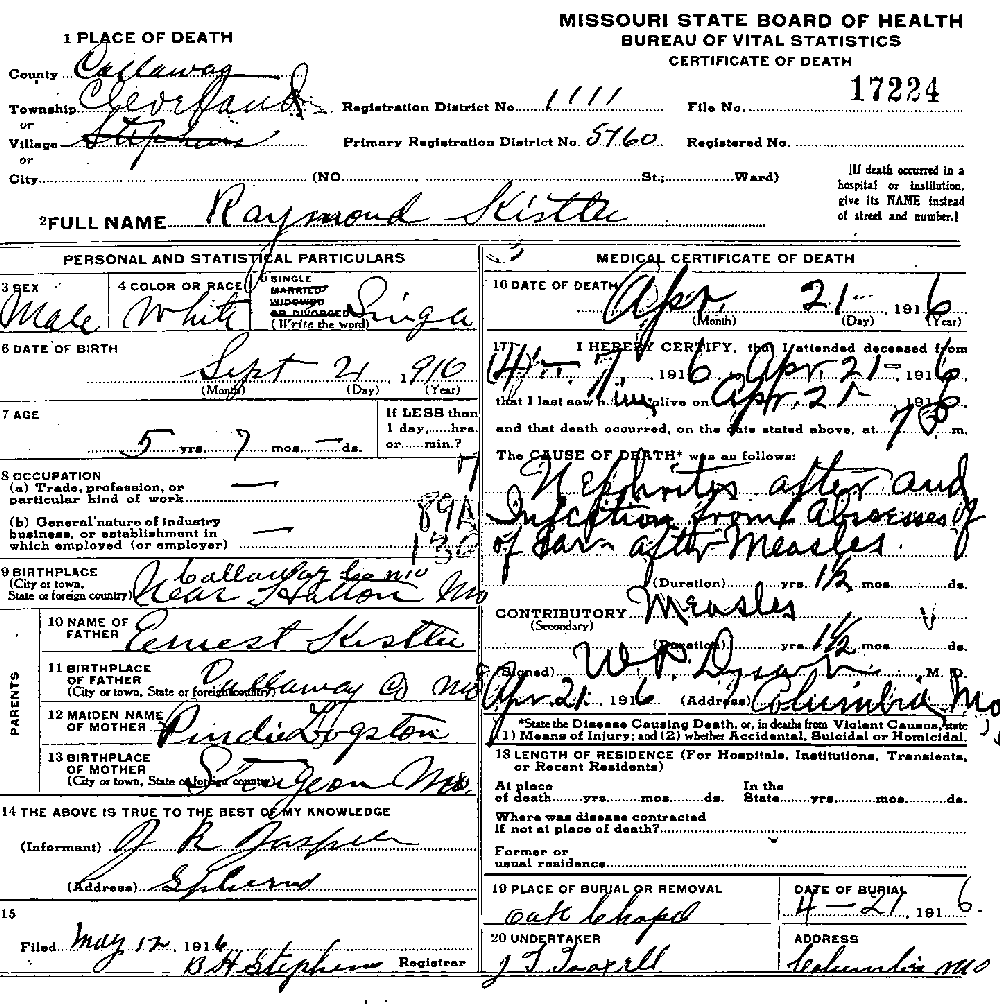 MISSOURI STATE BOARD OF HEALTH
BUREAU OF VITAL STATISTICS
CERTIFICATE OF DEATH
1 PLACE OF DEATH
County Callaway
Township Cleveland
or
Village Stephens
or
City (NO. St.; Ward)
Registration District No. 1111
File No. 17224
Primary Registration District No. 5760
Registered No.
[If death occurred in a
hospital or institution,
give its NAME instead
of street and number.]
2 FULL NAME Raymond Kistler
PERSONAL AND STATISTICAL PARTICULARS
3 SEX
Male
4 COLOR OR RACE
White
SINGLE
MARRIED
WIDOWED
OR DIVORCED
(Write the word)
Single
6 DATE OF BIRTH
Sept 21 1910
(Month) (Day) (Year)
7 AGE
5 yrs. 7 mos. — ds.
If LESS than
1 day, hrs.
or min.?
8 OCCUPATION
(a) Trade, profession, or
particular kind of work —
(b) General nature of industry
business, or establishment in
which employed (or employer) —
89A
130
9 BIRTHPLACE
(City or town,
State or foreign country)
Callaway Co mo
Near Hatton Mo
PARENTS
10 NAME OF
FATHER Ernest Kistler
11 BIRTHPLACE
OF FATHER
(City or town, State or foreign country)
Callaway Co mo
12 MAIDEN NAME
OF MOTHER
13 BIRTHPLACE
OF MOTHER
(City or town, State or foreign country)
Sturgeon Mo
14 THE ABOVE IS TRUE TO THE BEST OF MY KNOWLEDGE
(Informant) J R Jasper
(Address) Stephens
15
Filed May 12, 1916
B H Stephens Registrar
MEDICAL CERTIFICATE OF DEATH
16 DATE OF DEATH
Apr 21 1916
(Month) (Day) (Year)
17 I HEREBY CERTIFY, that I attended deceased from
4 – 7, 1916, Apr. 21 – 1916,
that I last saw him alive on Apr. 21 1916,
and that death occurred, on the date stated above, at 7 P m.
The CAUSE OF DEATH* was as follows:
Nephrites after and
Infection from Abscesses of
of Ear after Measles.
(Duration) yrs. 1½ mos. ds.
CONTRIBUTORY Measles
(Secondary)
(Duration) yrs. 1½ mos. ds.
(Signed) W. P. Dysart M. D.
Apr. 21, 1916 (Address) Columbia Mo
*State the Disease Causing Death, or, in deaths from Violent Causes, state
(1) Means of Injury; and (2) whether Accidental, Suicidal or Homicidal.
18 LENGTH OF RESIDENCE (For Hospitals, Institutions, Transients,
or Recent Residents)
At place
of death yrs. mos. ds.
In the
State yrs. mos. ds.
Where was disease contracted
if not at place of death?
Former or
usual residence
19 PLACE OF BURIAL OR REMOVAL
Oak Chapel
DATE OF BURIAL
4 – 27, 1916.
20 UNDERTAKER
ADDRESS
Columbia mo